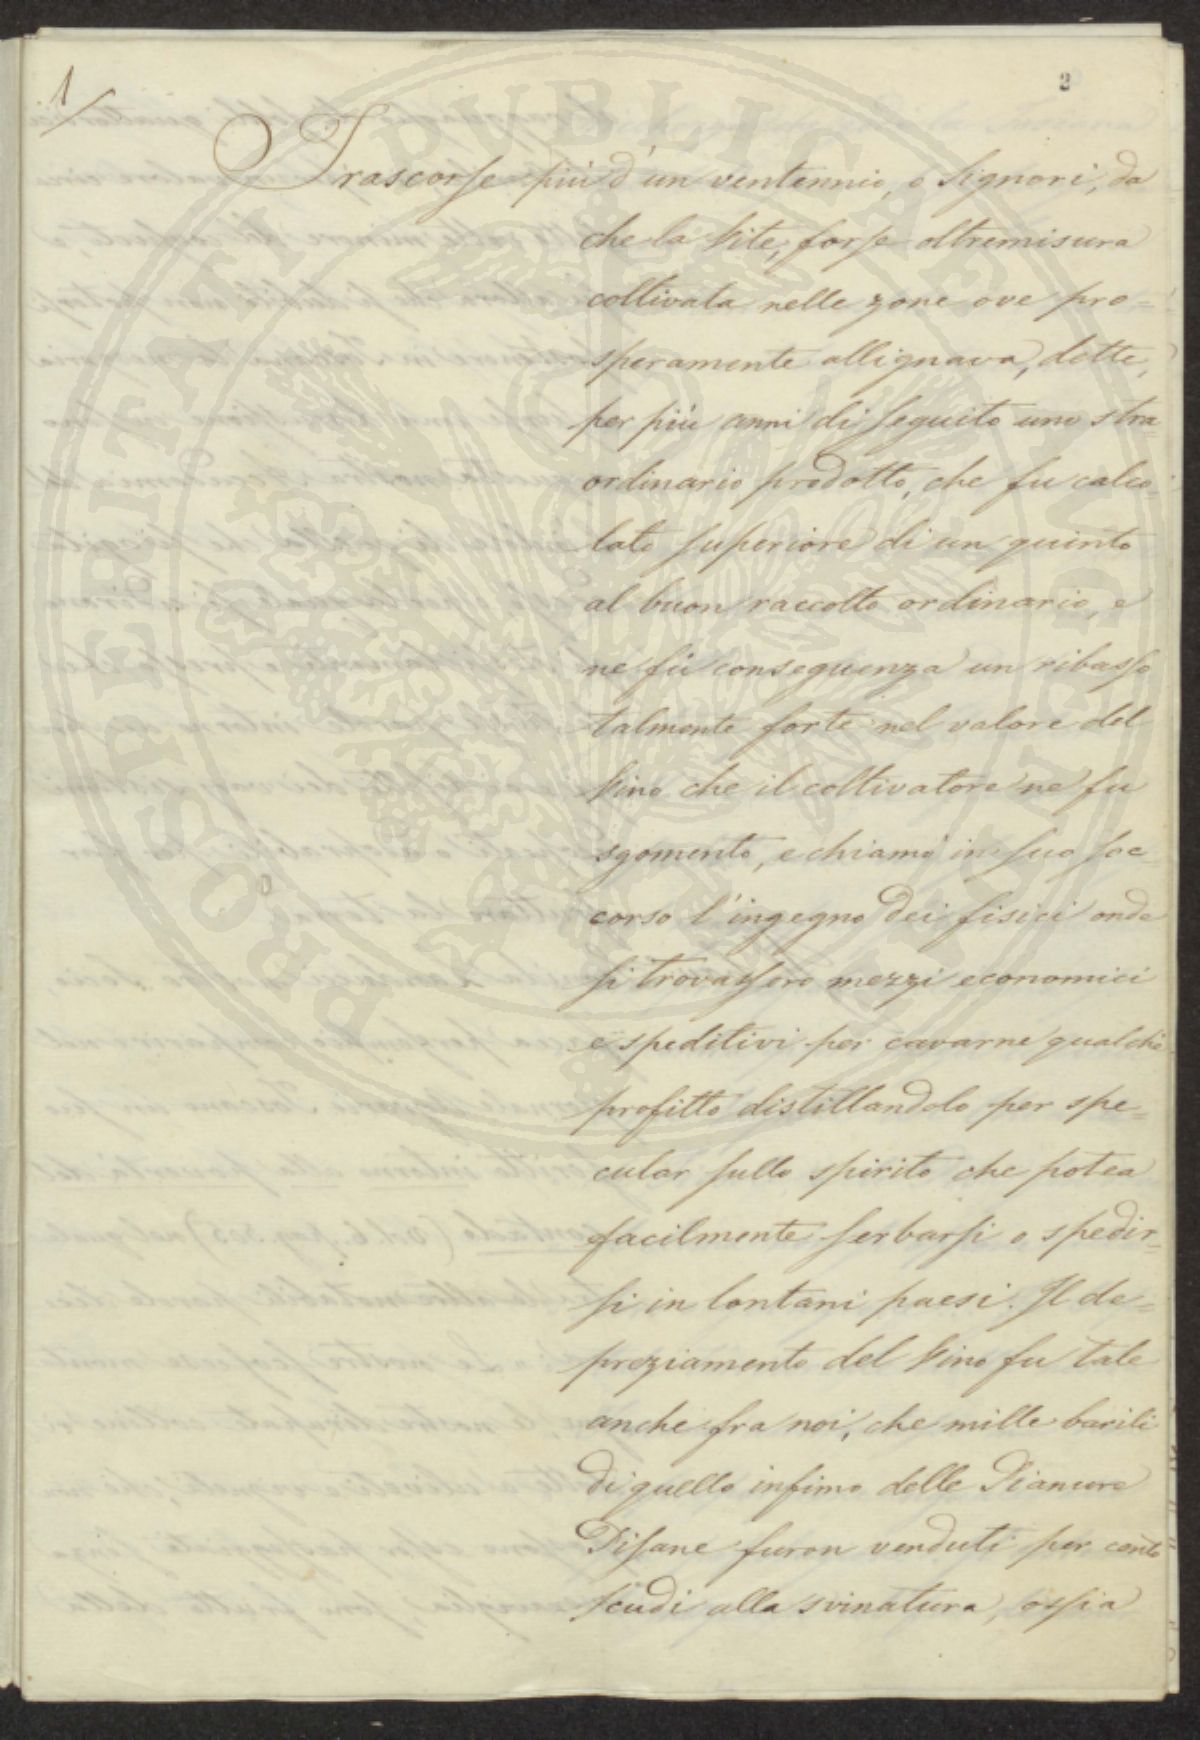 1/
2
Trascorse più d'un ventennio, o Signori, da
che la Vite, forse oltremisura
coltivata nelle zone ove pro=
speramente allignava, dette,
per più anni di seguito uno stra=
ordinario prodotto, che fu calco=
lato superiore di un quinto
al buon raccolto ordinario, e
ne fù conseguenza un ribasso
talmente forte nel valore del
Vino che il coltivatore ne fu
sgomento, e chiamò in suo soc=
corso l'ingegno dei fisici onde
si trovassero mezzi economici
e speditivi per cavarne qualche
profitto distillandolo per spe=
cular sullo spirito che potea
facilmente serbarsi o spedir=
si in lontani paesi. Il de=
preziamento del Vino fu tale
anche fra noi, che mille barili
di quello infimo delle Pianure
Pisane furon venduti per cento
scudi alla svinatura, ossia
PROSPERITATI PUBLICAE AUGENDAE